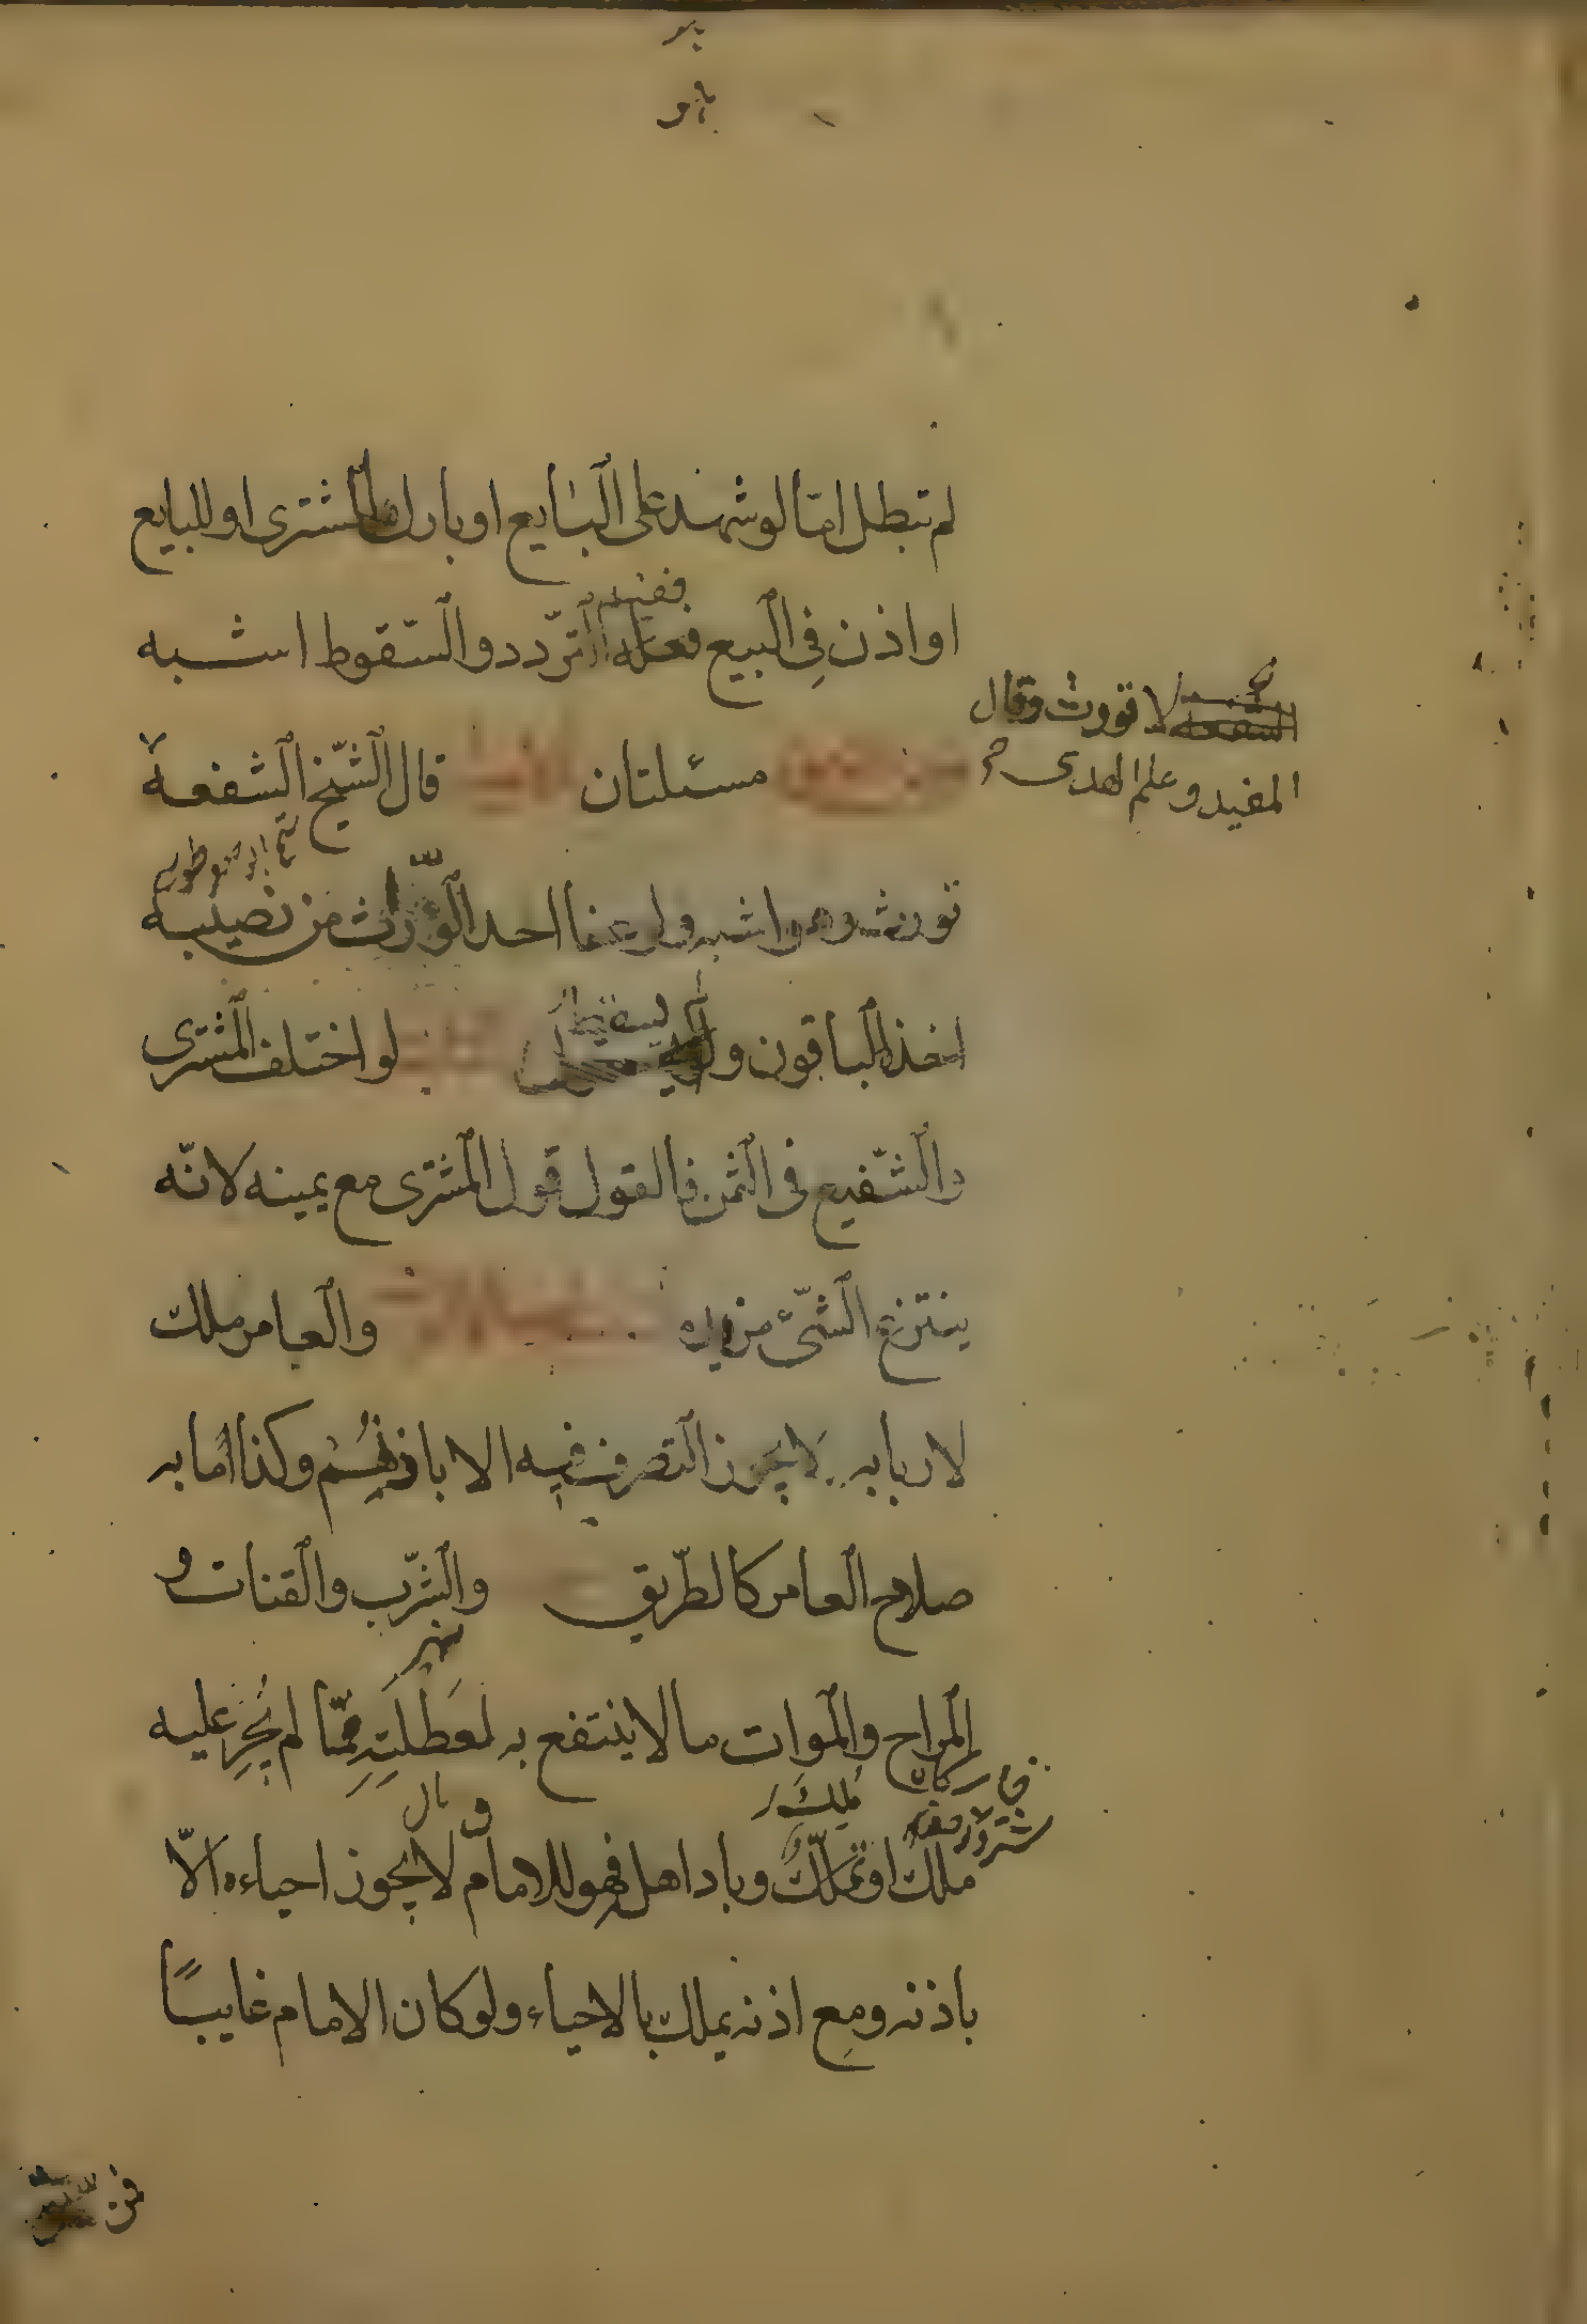 لم تبطل اما لو شهد على البايع او بارك للمشترى او للبايع
او اذن فى البيع ففيه التردد والسقوط اشبه
لا تورث وقال
المفيد وعلم الهدى
مسئلتان قال الشيخ الشفعة
تورث واشبه ولو عفا احد الورّاث من نصيبه
اخذ الباقون ولم يسقط لو اختلف المشترى
والشّفيع فى الثمن فالقول قول المشترى مع يمينه لانّه
ينتزع الشّئ من يده والعامر ملك
لاربابه لا يجوز التصرف فيه الا باذنهم وكذا ما به
صلاح العامر كالطّريق والشّرب والقنات و
المراح والموات ما لا ينتفع به لعطلته ممّا لم يجر عليه
ملك او تملّك وباد اهله فهو للامام لا يجوز احياءه الّا
باذنه ومع اذنه يملك بالاحياء ولو كان الامام غايبًا
فمن